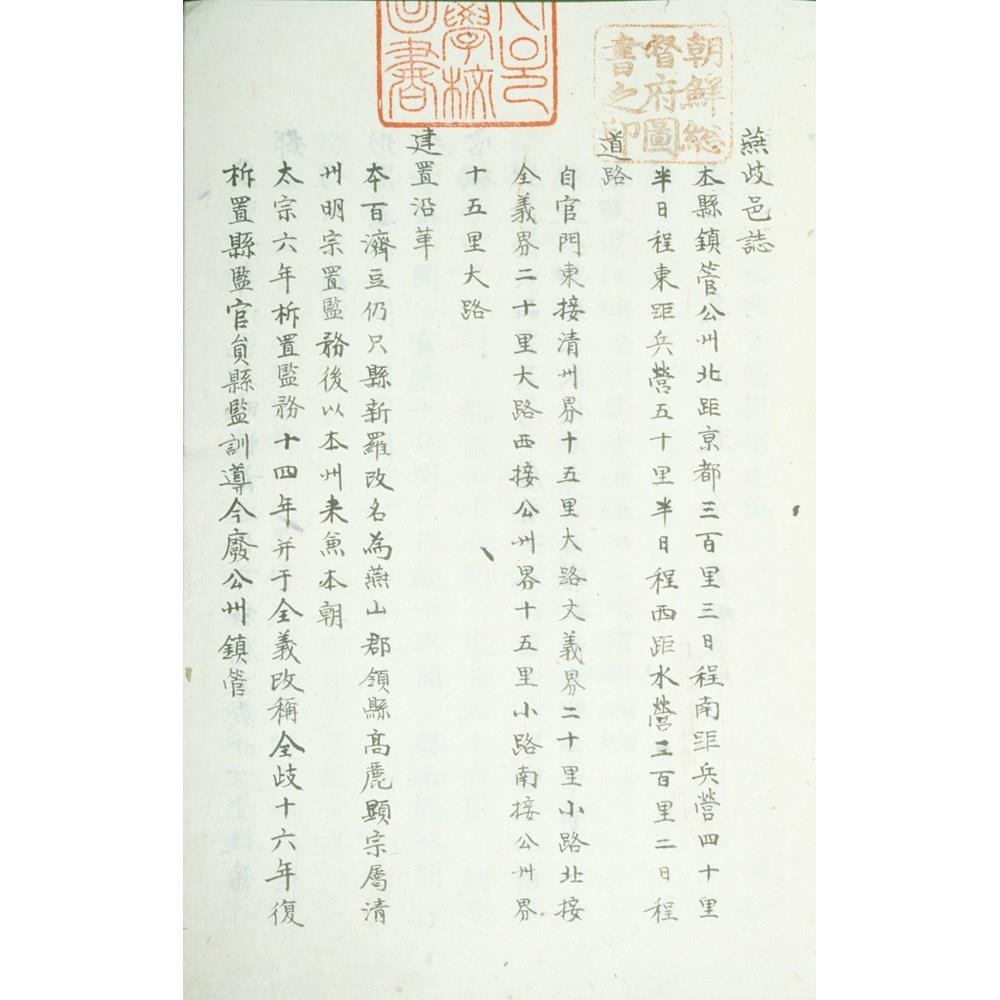 燕歧邑誌
本縣鎮管公州北距京都三百里三日程南距兵營四十里
半日程東距兵營五十里半日程西距水營三百里二日程
道路
自官門東接清州界十五里大路文義界二十里小路北接
全義界二十里大路西接公州界十五里小路南接公州界
十五里大路
建置沿革
本百濟豆仍只縣新羅改名為燕山郡領縣高麗顯宗屬清
州明宗置監務後以本州来兼本朝
太宗六年析置監務十四年并于全義改稱全歧十六年復
析置縣監官員縣監訓導今廢公州鎮管
朝鮮総
督府圖
書之印
學校
圖書